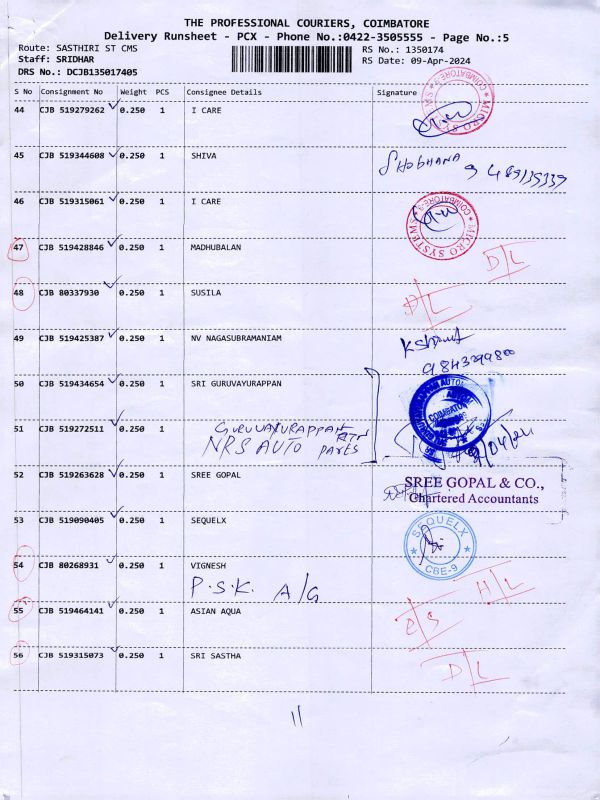 THE PROFESSIONAL COURIERS, COIMBATORE
Delivery Runsheet - PCX - Phone No.:0422-3505555 - Page No.:5
Route: SASTHIRI ST CMS
RS No.: 1350174
Staff: SRIDHAR
RS Date: 09-Apr-2024
DRS No.: DCJB135017405
S No Consignment No Weight PCS Consignee Details Signature
44 CJB 519279262 0.250 1 I CARE
MICRO SYSTEMS COIMBATORE-9
45 CJB 519344608 0.250 1 SHIVA SHOBHANA
46 CJB 519315061 0.250 1 I CARE
MICRO SYSTEMS COIMBATORE-9
47 CJB 519428846 0.250 1 MADHUBALAN D/L
48 CJB 80337930 0.250 1 SUSILA D/L
49 CJB 519425387 0.250 1 NV NAGASUBRAMANIAM
50 CJB 519434654 0.250 1 SRI GURUVAYURAPPAN
51 CJB 519272511 0.250 1 GURUVAYURAPPAN
NRS AUTO PARTS
52 CJB 519263628 0.250 1 SREE GOPAL
SREE GOPAL & CO.,
Chartered Accountants
53 CJB 519090405 0.250 1 SEQUELX
SEQUELX CBE-9
54 CJB 80268931 0.250 1 VIGNESH
P.S.K. A/G H/L
55 CJB 519464141 0.250 1 ASIAN AQUA
56 CJB 519315073 0.250 1 SRI SASTHA D/L
11